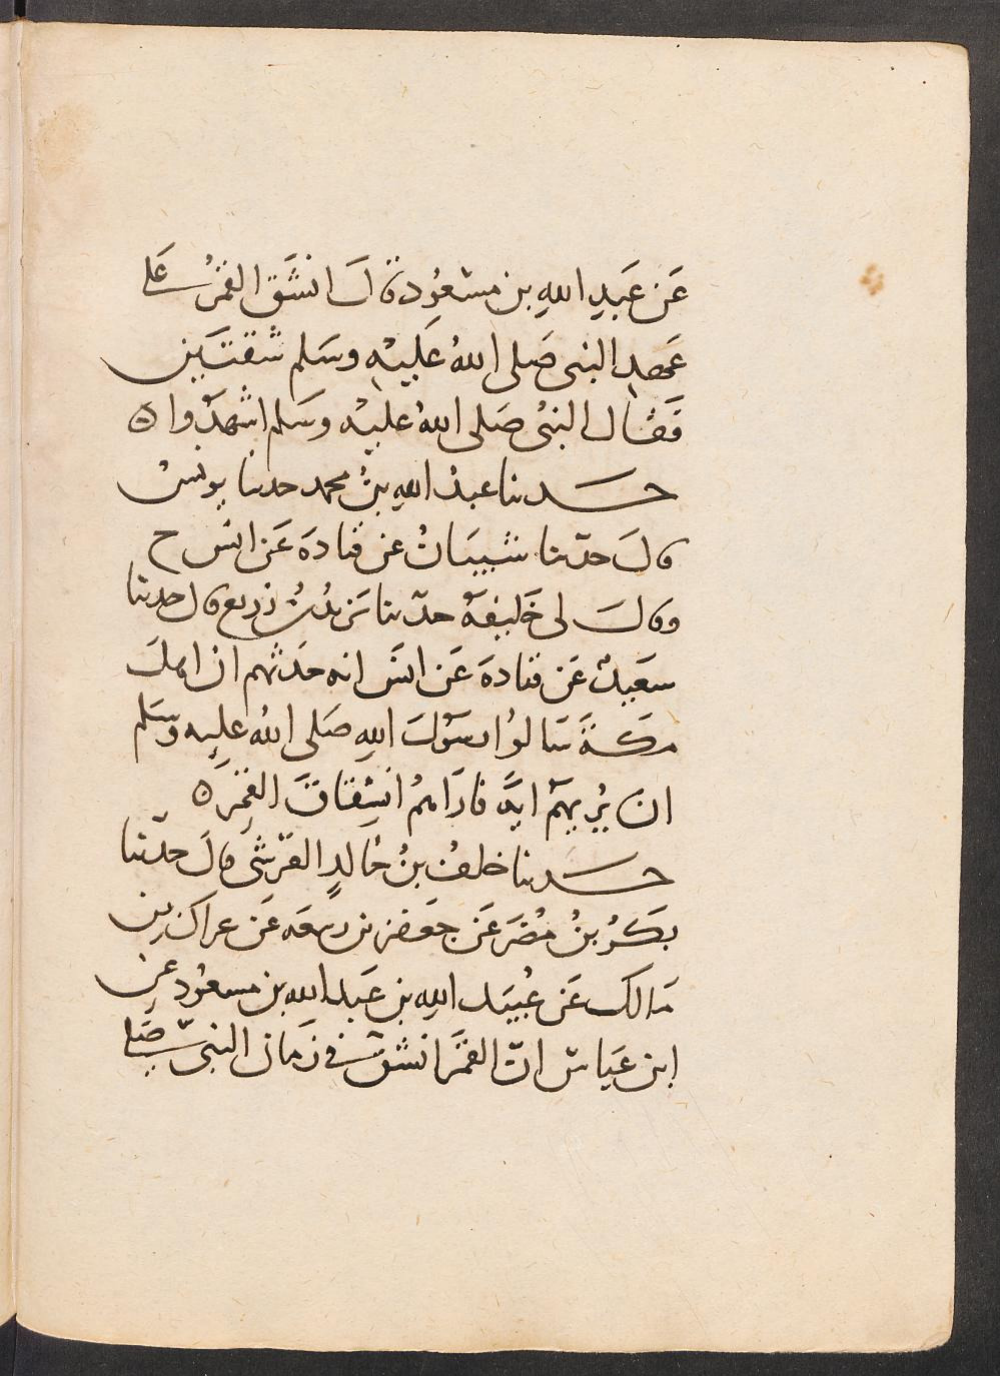 عَن عَبدِ اللهِ بن مسَعُود قال انشَقَّ القمَرُ عَلى
عَهدِ النبى صَلى اللهُ عَليْهِ وسَلم شقتَين
فَقال النبىُ صَلى اللهُ عليْه وسَلم اشهَدُوا ه
حَدثنا عبدُ اللهِ بنُ محمد حدثنا يونسُ
قالَ حدّثنا شَيبَانُ عن قتادَة عَن انسَ ح
وقالَ لى خَليفةُ حدّثنا يَزيدُ بنُ زريع قال حدثنا
سعَيدٌ عَن قتادةَ عَن انسَ انه حَدثهم ان اهلَ
مكةَ سَالوُا رسَوُلَ اللهِ صَلى اللهُ عليه وسَلم
ان يُريهَم ايةً فارَاهمُ انشِقاقَ القمَرِ ه
حَدثنا خلفُ بنُ خالدٍ القرَشىُ قالَ حدّثنا
بَكرُ بنُ مُضَر عَن جَعفر بن ربيعَه عَن عراك بن
مَالك عَن عُبيَد اللهِ بن عَبد الله بن مسعُود عن
ابن عَباسٍ انّ القمَرَ انشقّ فى زمَان النبىّ صَلى